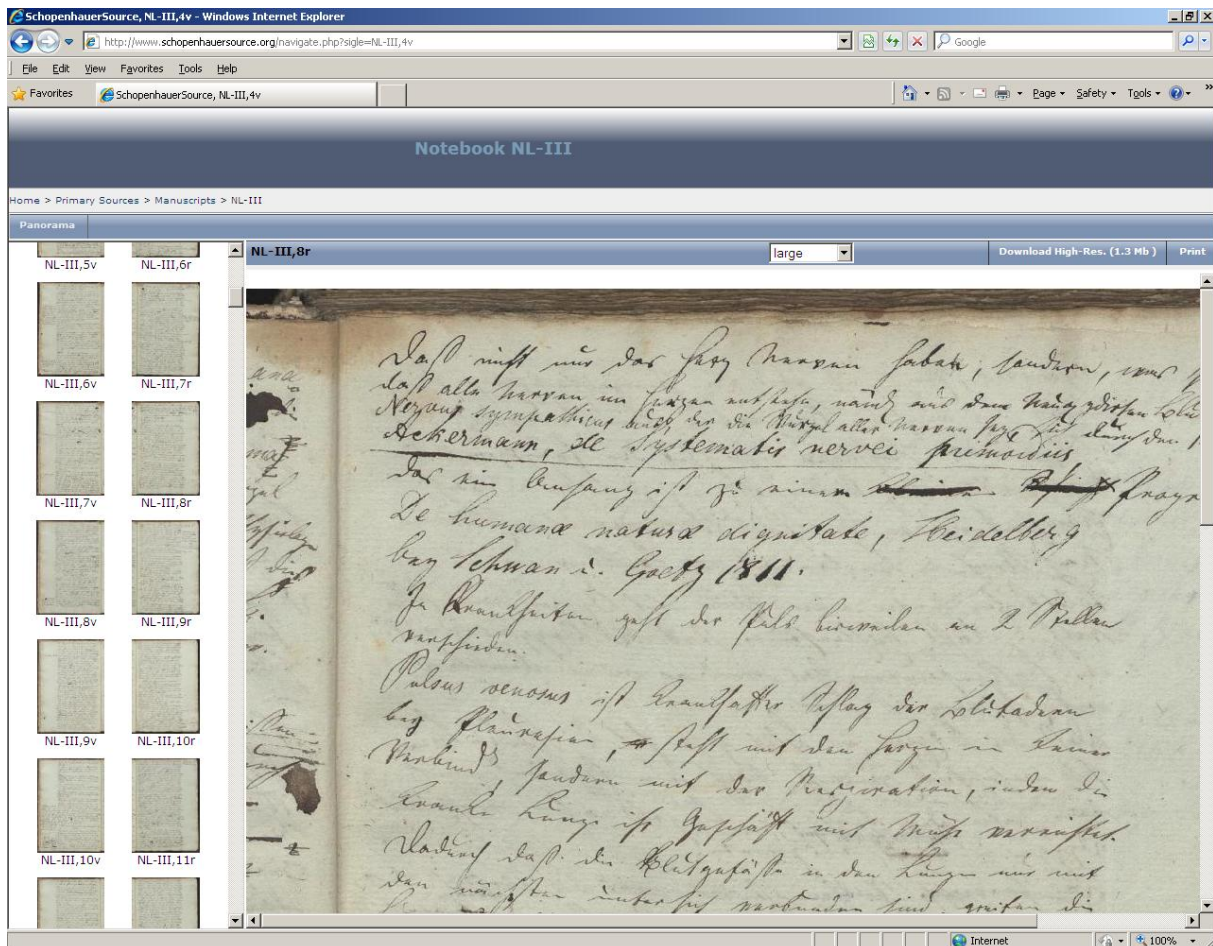 SchopenhauerSource, NL-III,4v - Windows Internet Explorer
http://www.schopenhauersource.org/navigate.php?sigle=NL-III,4v
Google
File Edit View Favorites Tools Help
Favorites
SchopenhauerSource, NL-III,4v
Page Safety Tools
Notebook NL-III
Home > Primary Sources > Manuscripts > NL-III
Panorama
NL-III,8r
large
Download High-Res. (1.3 Mb )
Print
NL-III,5v NL-III,6r
NL-III,6v NL-III,7r
NL-III,7v NL-III,8r
NL-III,8v NL-III,9r
NL-III,9v NL-III,10r
NL-III,10v NL-III,11r
Daß nicht nur das Herz Nerven habe, sondern, was
daß alle Nerven im Herzen entstehn, aus dem
Nervus sympathicus der die Wurzel aller Nerven sey, sich durch den
Ackermann, de Systematis nervei primordiis,
das ein Anhang ist zu einem
De humanæ naturæ dignitate, Heidelberg
bey Schwan u. Goetz 1811.
In Krankheiten geht der Puls bisweilen an 2 Stellen
verschieden.
Pulsus venosus ist krankhafter Schlag der Blutadern
bey Pleuresien, steht mit dem Herzen in keiner
Verbindg, sondern mit der Respiration, indem die
kranke Lunge ihr Geschäft mit Mühe verrichtet.
Dadurch daß die Blutgefäße in der Lunge nur mit
den nächsten unter sich verbunden sind, greifen die
Internet
100%